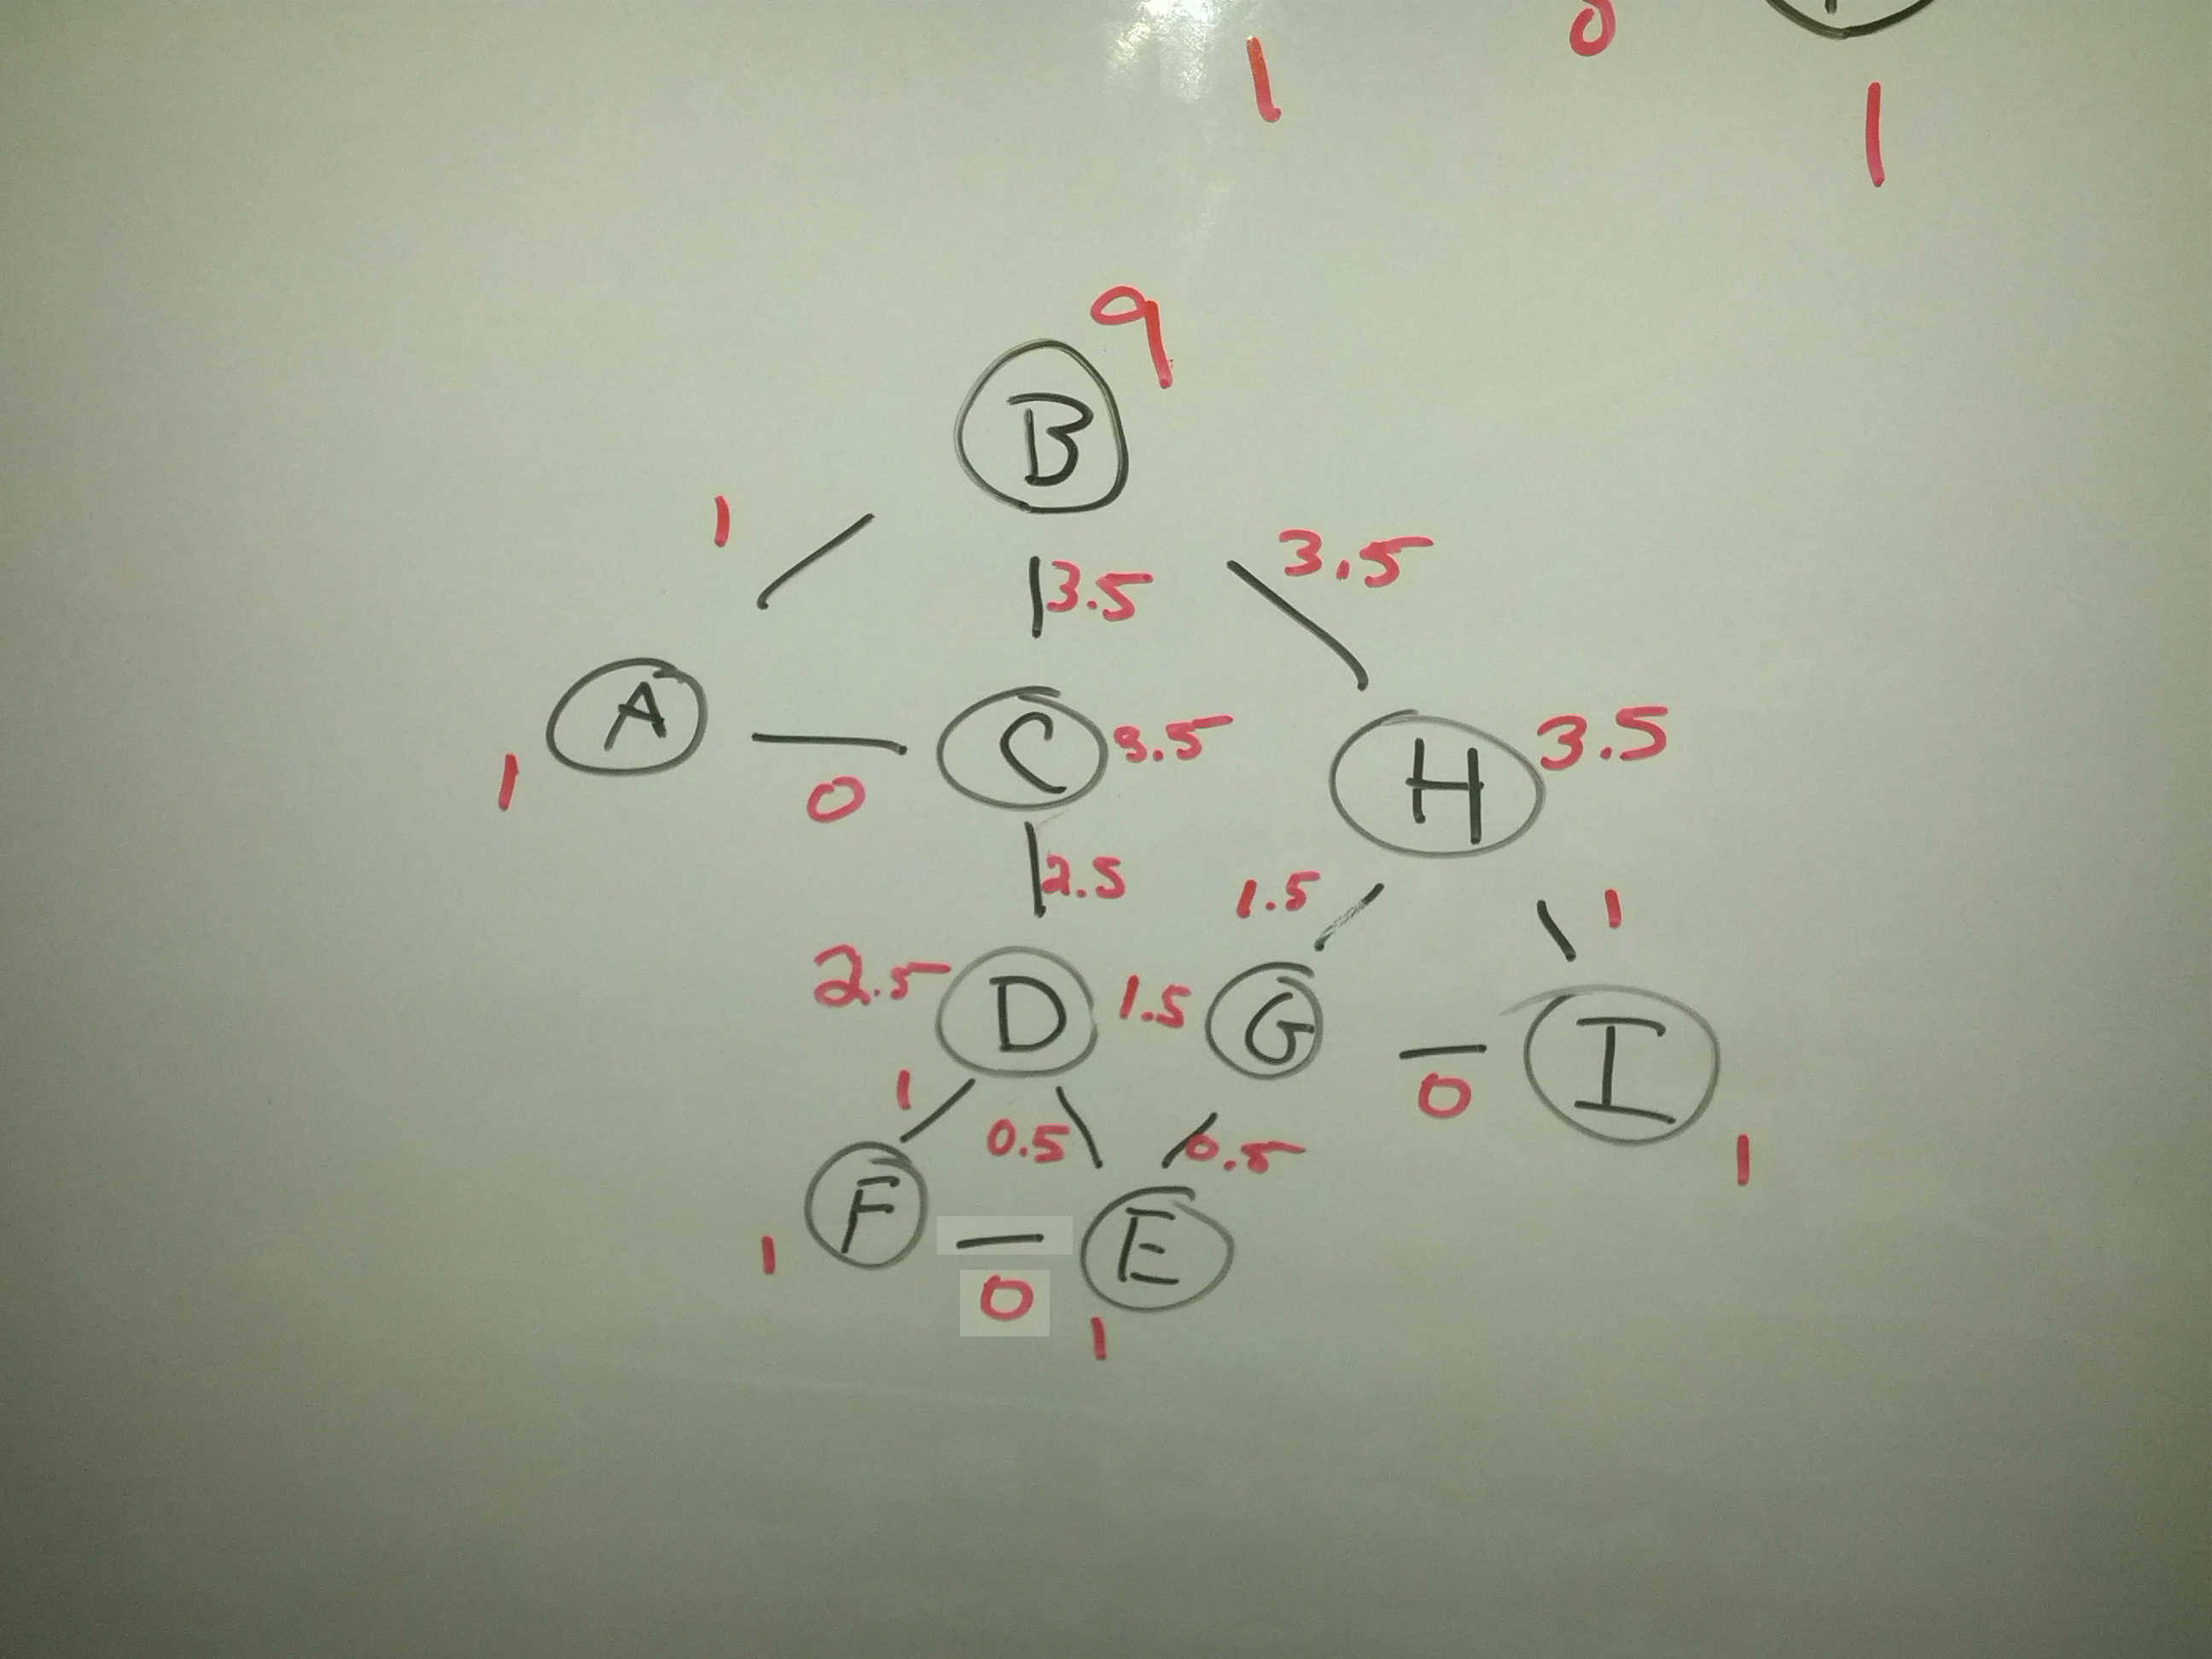 0
1
1
9
B
1
3.5
3.5
A
C
3.5
H
3.5
1
0
2.5
1.5
1
2.5
D
1.5
G
I
0
1
0.5
0.5
1
F
E
1
0
1